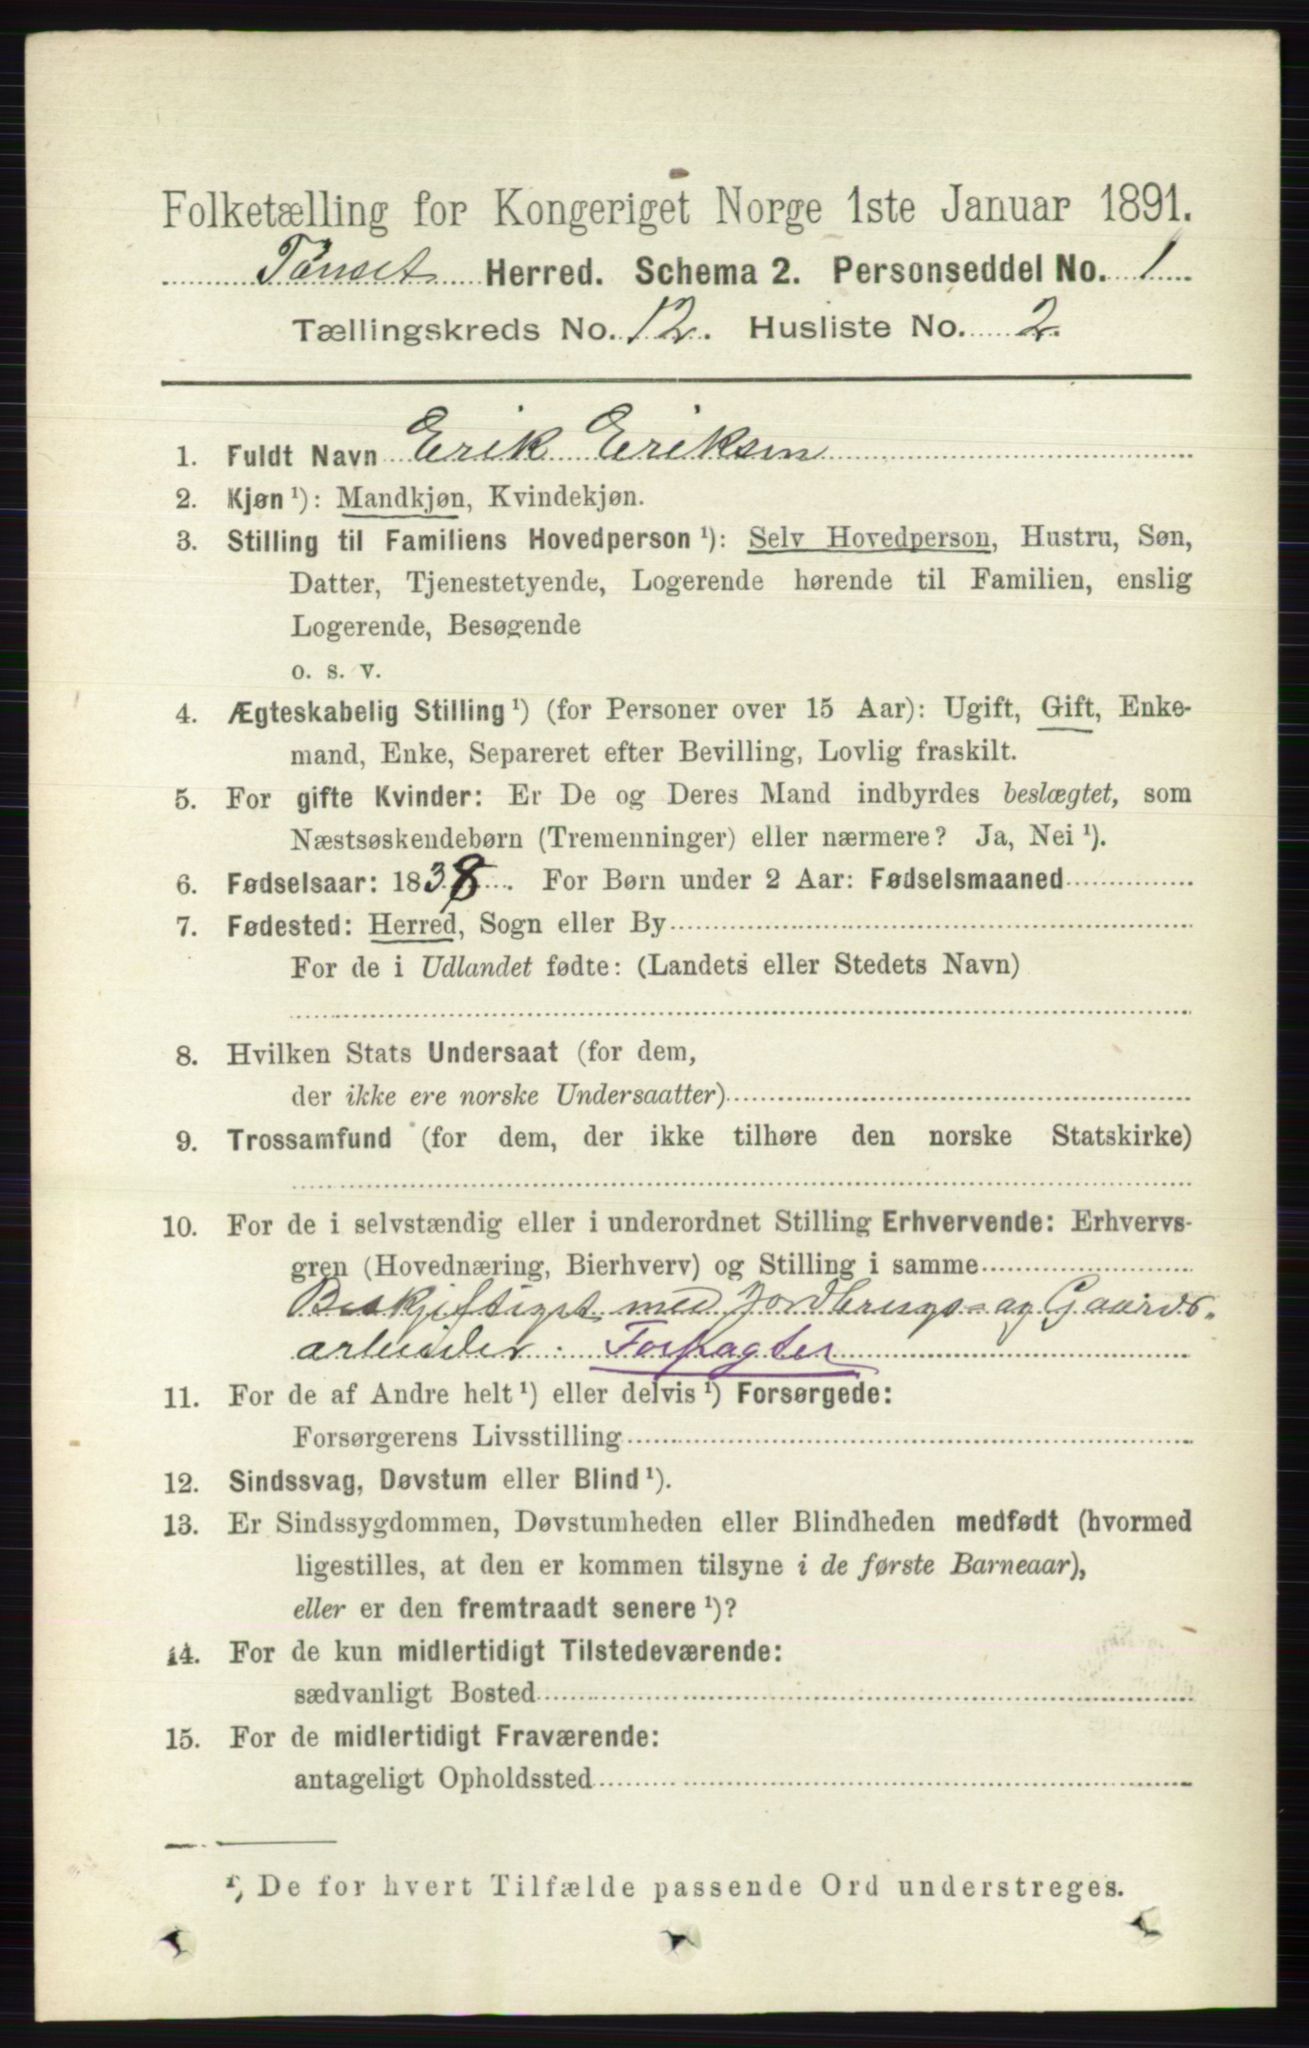 Folketælling for Kongeriget Norge 1ste Januar 1891.
Tønset Herred. Schema 2. Personseddel No. 1
Tællingskreds No. 12. Husliste No. 2.
1. Fuldt Navn Erik Eriksen
2. Kjøn ¹): Mandkjøn, Kvindekjøn.
3. Stilling til Familiens Hovedperson ¹): Selv Hovedperson, Hustru, Søn,
Datter, Tjenestetyende, Logerende hørende til Familien, enslig
Logerende, Besøgende
o. s. v.
4. Ægteskabelig Stilling ¹) (for Personer over 15 Aar): Ugift, Gift, Enke-
mand, Enke, Separeret efter Bevilling, Lovlig fraskilt.
5. For gifte Kvinder: Er De og Deres Mand indbyrdes beslægtet, som
Næstsøskendebørn (Tremenninger) eller nærmere? Ja, Nei ¹).
6. Fødselsaar: 1838. For Børn under 2 Aar: Fødselsmaaned
7. Fødested: Herred, Sogn eller By
For de i Udlandet fødte: (Landets eller Stedets Navn)
8. Hvilken Stats Undersaat (for dem,
der ikke ere norske Undersaatter)
9. Trossamfund (for dem, der ikke tilhøre den norske Statskirke)
10. For de i selvstændig eller i underordnet Stilling Erhvervende: Erhvervs-
gren (Hovednæring, Bierhverv) og Stilling i samme
Beskjeftiget med Jordbrugs- og Gaards-
arbeider. Forpagter
11. For de af Andre helt ¹) eller delvis ¹) Forsørgede:
Forsørgerens Livsstilling
12. Sindssvag, Døvstum eller Blind ¹).
13. Er Sindssygdommen, Døvstumheden eller Blindheden medfødt (hvormed
ligestilles, at den er kommen tilsyne i de første Barneaar),
eller er den fremtraadt senere ¹)?
14. For de kun midlertidigt Tilstedeværende:
sædvanligt Bosted
15. For de midlertidigt Fraværende:
antageligt Opholdssted
¹) De for hvert Tilfælde passende Ord understreges.